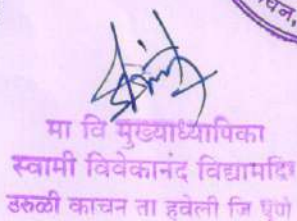 चन,
मा वि मुख्याध्यापिका
स्वामी विवेकानंद विद्यामदिर
उरुळी काचन ता हवेली जि पुणे